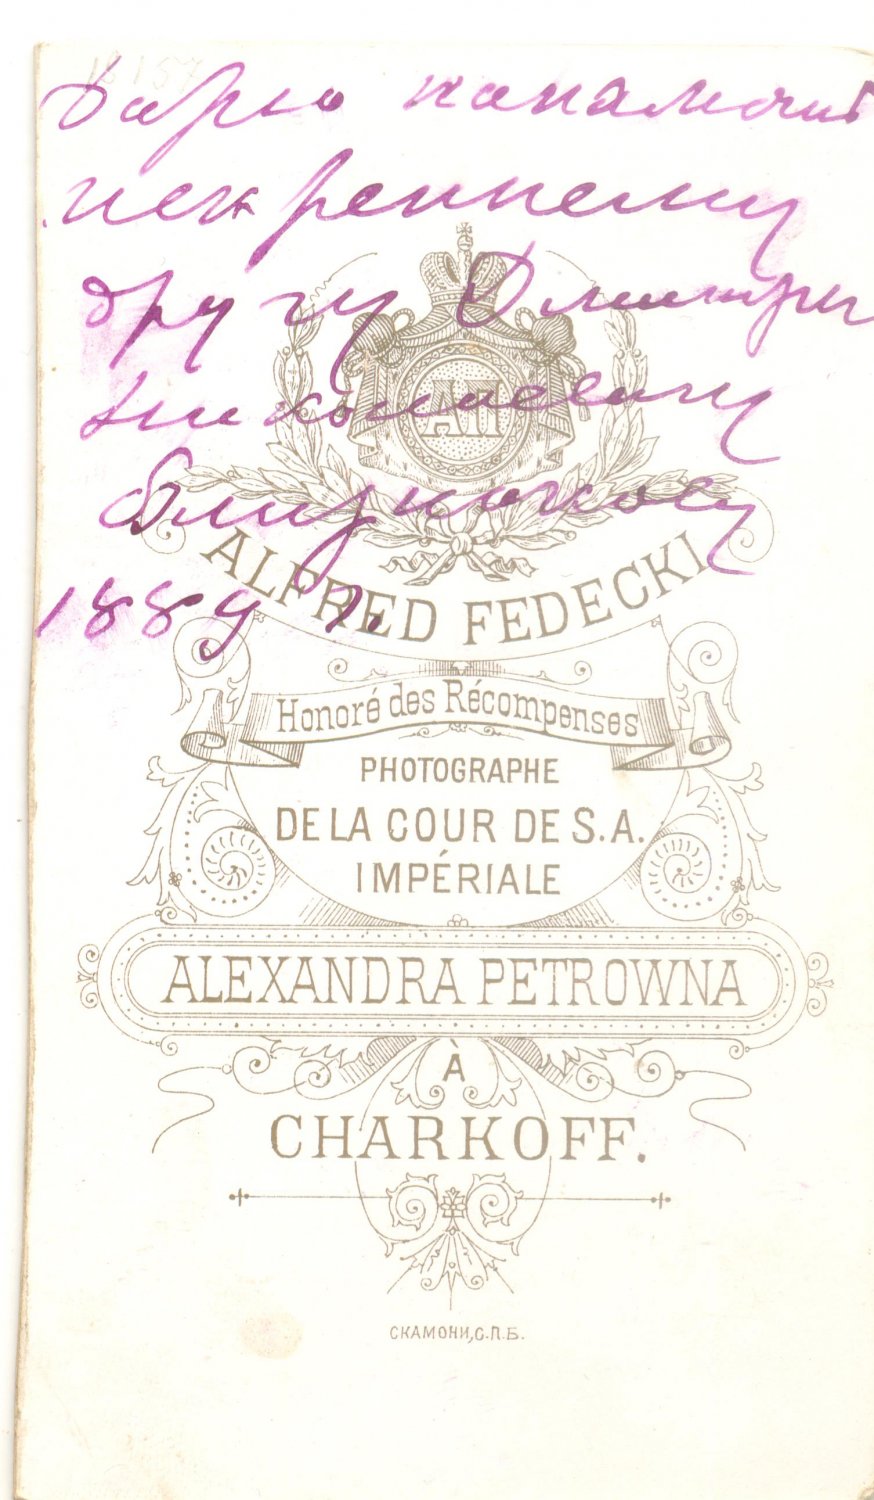 Дарю на память
искреннему
другу Дмитри
Николаевичу
1889 г.
АП
ALFRED FEDECKI
Honoré des Récompenses
PHOTOGRAPHE
DE LA COUR DE S.A.
IMPÉRIALE
ALEXANDRA PETROWNA
À
CHARKOFF.
СКАМОНИ, С.П.Б.